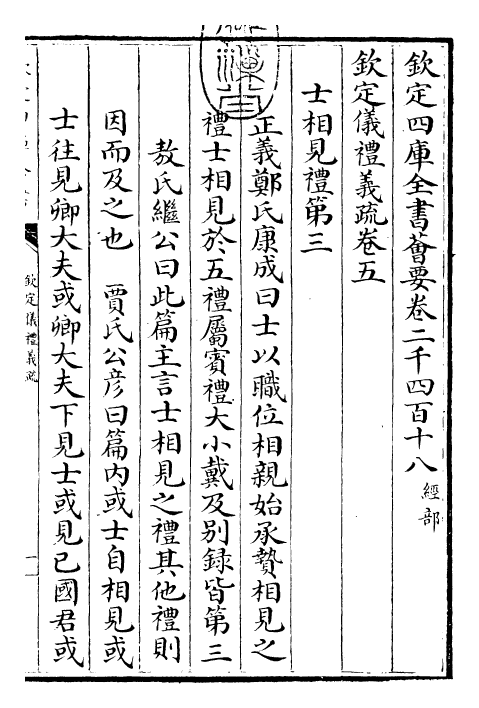 欽定四庫全書薈要卷二千四百十八經部
欽定儀禮義疏卷五
士相見禮第三
正義鄭氏康成曰士以職位相親始承贄相見之
禮士相見於五禮屬賓禮大小戴及别錄皆第三
敖氏繼公曰此篇主言士相見之禮其他禮則
因而及之也　賈氏公彦曰篇内或士自相見或
士往見卿大夫或卿大夫下見士或見已國君或
欽定儀禮義疏
一